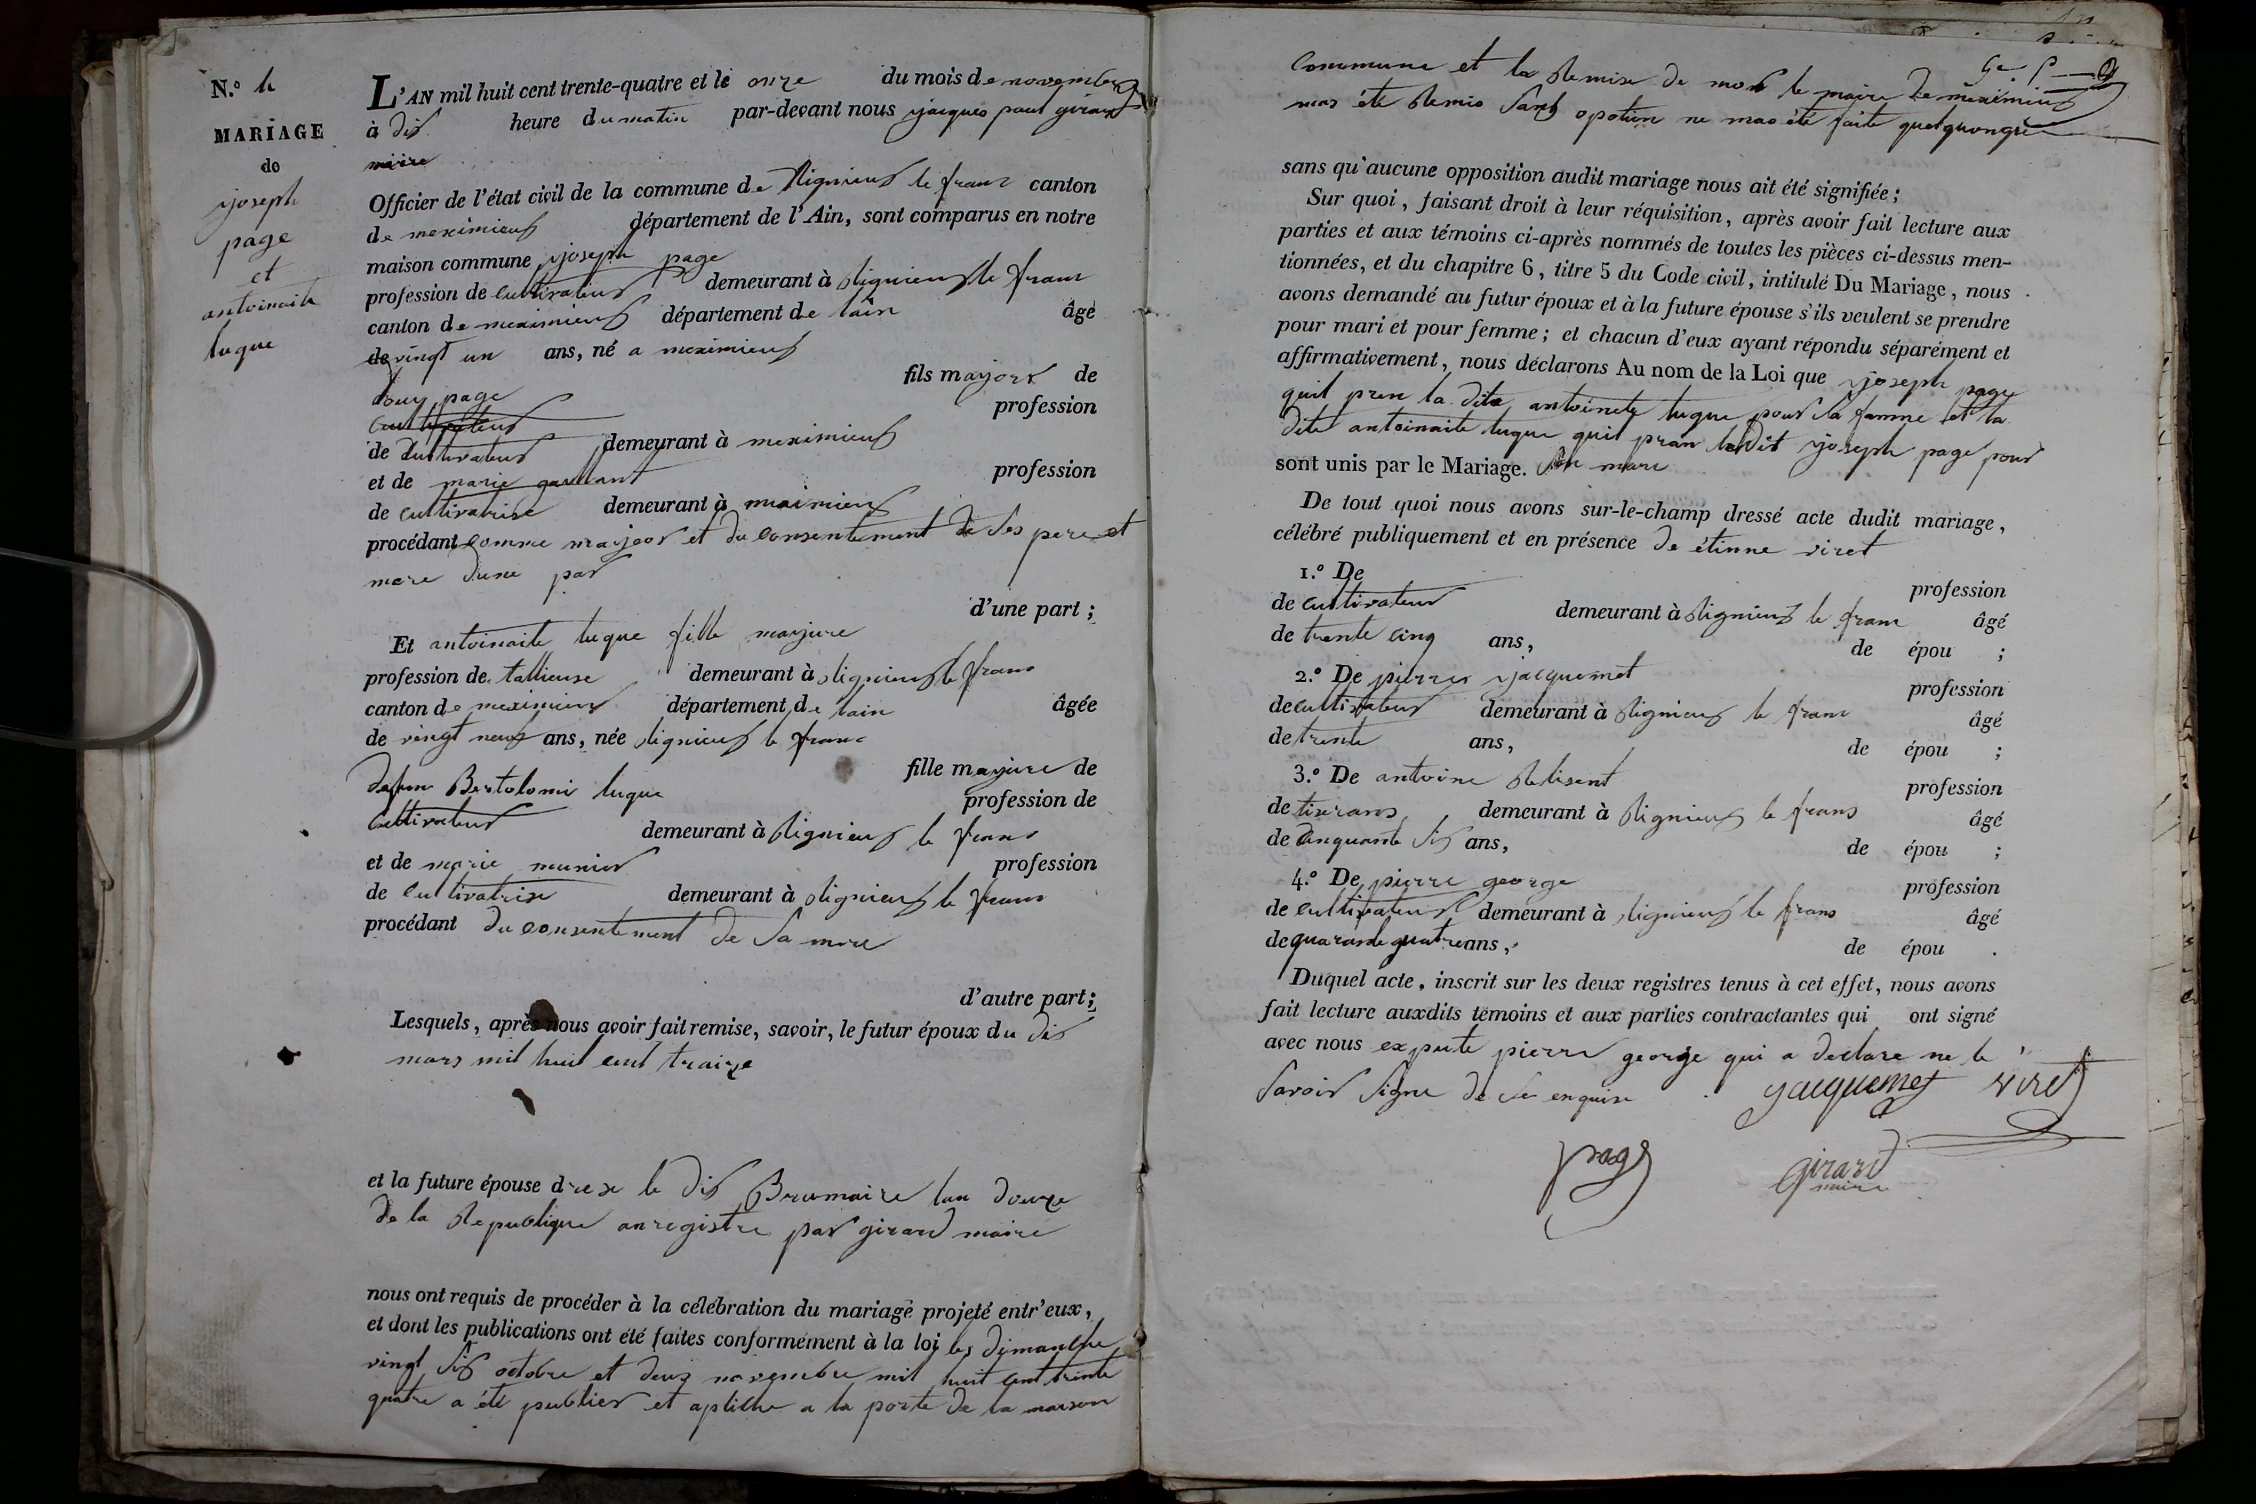 N.º 4
MARIAGE
de
joseph
page
et
antoinaite
luque
L'AN mil huit cent trente-quatre et le onze du mois de novembre
à dis heure du matin par-devant nous jacques paul girard
maire
Officier de l'état civil de la commune de Rignieux le franc canton
de meximieux département de l'Ain, sont comparus en notre
maison commune joseph page
profession de cultivateur demeurant à Rignieux le franc
canton de meximieux département de lain âgé
de vingt un ans, né a meximieux
fils major de
page
profession
de Cultivateur demeurant à meximieux
et de marie profession
de cultivatrise demeurant à
procédant comme majeor et du consentement de ses pere et
mere dune par
d'une part ;
Et antoinaite luque fille marjure
profession de tallieuse demeurant à Rignieux le franc
canton de meximieux département de lain âgée
de vingt neuf ans, née Rignieux le franc
fille marjure de
defun Bertolomi luque profession de
Cultivateur demeurant à Rignieux le franc
et de marie munier profession
de cultivatrise demeurant à Rignieux le franc
procédant du consentement de sa mere
d'autre part ;
Lesquels, après nous avoir fait remise, savoir, le futur époux du dis
mars mil huit cent traize
et la future épouse le dis Brumaire lan douze
de la Republique anregistre par girard maire
nous ont requis de procéder à la célébration du mariage projeté entr'eux,
et dont les publications ont été faites conformément à la loi les dimanche
vingt sis octobre et deux novembre mil huit cent trente
quatre a été publier et apliche a la porte de la maison
Commune et la Remise de mons le maire de meximieux
mas été Remis sans opotion ne mas été faite quelquongue
sans qu'aucune opposition audit mariage nous ait été signifiée ;
Sur quoi, faisant droit à leur réquisition, après avoir fait lecture aux
parties et aux témoins ci-après nommés de toutes les pièces ci-dessus men-
tionnées, et du chapitre 6, titre 5 du Code civil, intitulé Du Mariage, nous
avons demandé au futur époux et à la future épouse s'ils veulent se prendre
pour mari et pour femme ; et chacun d'eux ayant répondu séparément et
affirmativement, nous déclarons Au nom de la Loi que joseph page
quil pren la dite antoinete luque pour sa famme et la
dite antoinaite luque quil pran ledit joseph page pour
sont unis par le Mariage. son mari
De tout quoi nous avons sur-le-champ dressé acte dudit mariage,
célébré publiquement et en présence de étinne viret
1.º De profession
de cultivateur demeurant à Rignieux le franc âgé
de trente cinq ans, de épou ;
2.º De pierre jacquemet profession
de cultivateur demeurant à Rignieux le franc âgé
de trente ans, de épou ;
3.º De antoine profession
de tixerans demeurant à Rignieux le franc âgé
de Cinquante sis ans, de épou ;
4.º De pierre george profession
de cultivateur demeurant à Rignieux le franc âgé
de quarante quatre ans, de épou .
Duquel acte, inscrit sur les deux registres tenus à cet effet, nous avons
fait lecture auxdits témoins et aux parties contractantes qui ont signé
avec nous expute pierre george qui a declare ne le
savoir signe de se enquire jacquemet viret
page girard
maire